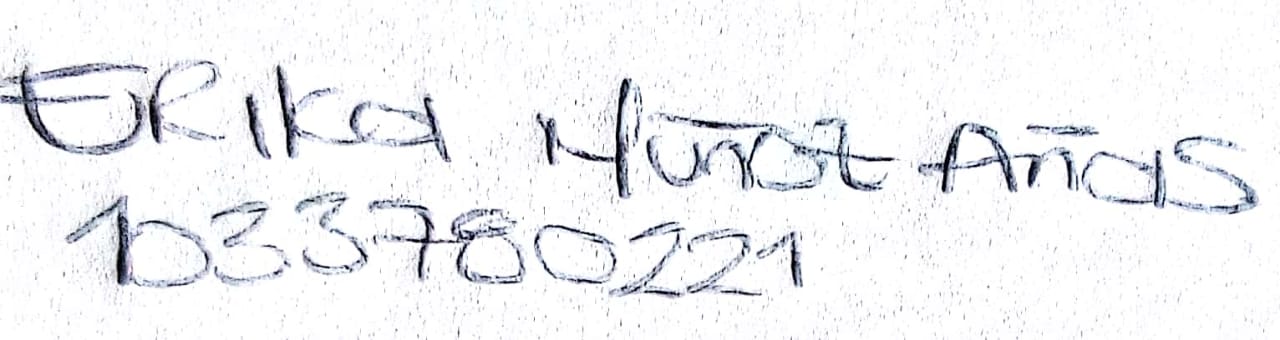 ERIKA MUÑOZ AÑAS
1033780221